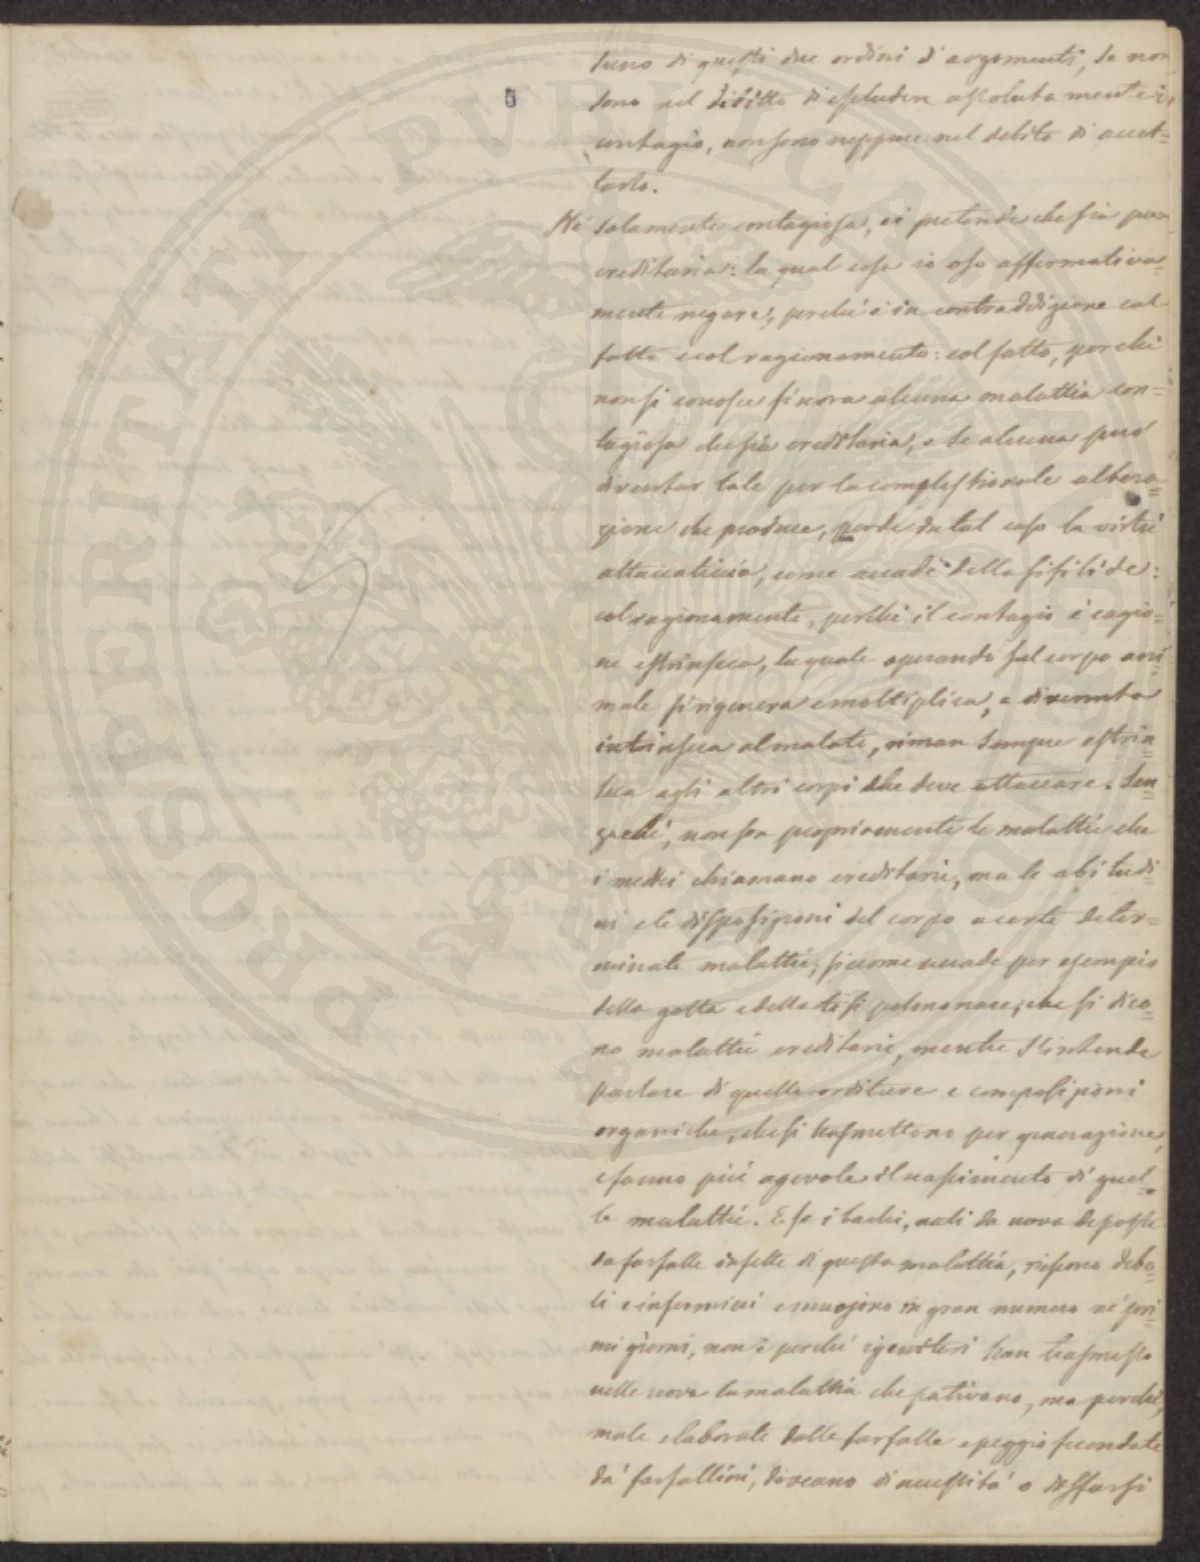 suno di questi due ordini d'argomenti, se non
sono nel diritto di escludere assolutamente il
contagio, non sono neppure nel debito di accet=
tarlo.
Nè solamente contagiosa, si pretende che sia pure
ereditaria: la qual cosa io oso affermativa=
mente negare, perchè è in contraddizione col
fatto e col ragionamento: col fatto, perchè
non si conosce finora alcuna malattia con=
tagiosa che sia ereditaria, e se alcuna può
diventar tale per la complessionale altera=
zione che produce, perde in tal caso la virtù
attaccaticcia, come accade della sifilide:
col ragionamento, perchè il contagio è cagio=
ne estrinseca, la quale operando sul corpo ani=
male si rigenera e moltiplica, e divenuta
intrinseca al malato, riman sempre estrin=
seca agli altri corpi che deve attaccare. Sen=
zachè, non son propriamente le malattie che
i medici chiamano ereditarie, ma le abitudi=
ni e le disposizioni del corpo a certe deter=
minate malattie, siccome accade per esempio
della gotta e della tisi polmonare, che si dico=
no malattie ereditarie, mentre s'intende
parlare di quelle orditure e composizioni
organiche, che si trasmettono per generazione,
e fanno più agevole il nascimento di quel=
le malattie. E se i bachi, nati da uova deposte
da farfalle infette di questa malattia, riescono debo=
li e infermicci e muojono in gran numero ne' pri=
mi giorni, non è perchè i genitori han trasmesso
nelle uova la malattia che pativano, ma perchè,
male elaborate dalle farfalle e peggio fecondate
da' farfallini, devono di necessità o disfarsi
PROSPERITATI PVBLICAE